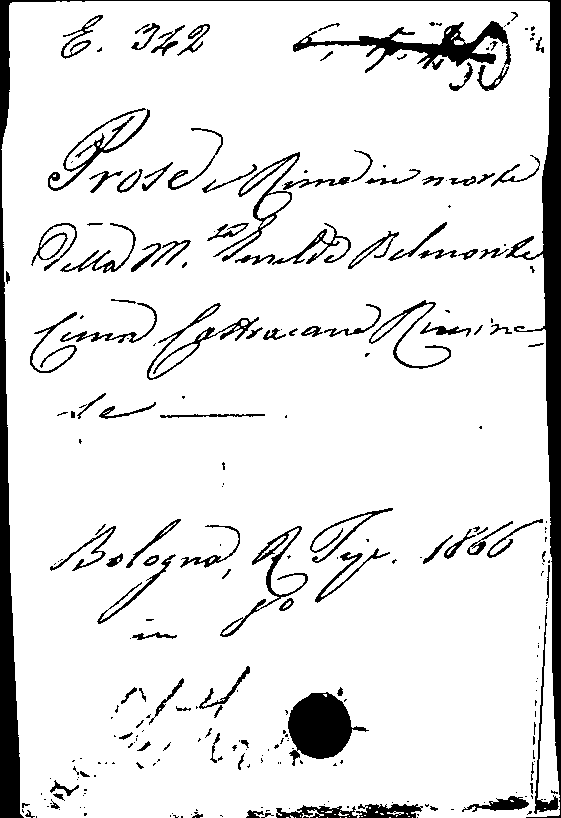 E. 342
Prose e Rime in morte
della M.sa Ineilde Belmonte
Cima Castracane Rimine-
se ——— .
Bologna, R. Tip. 1866
in 8o